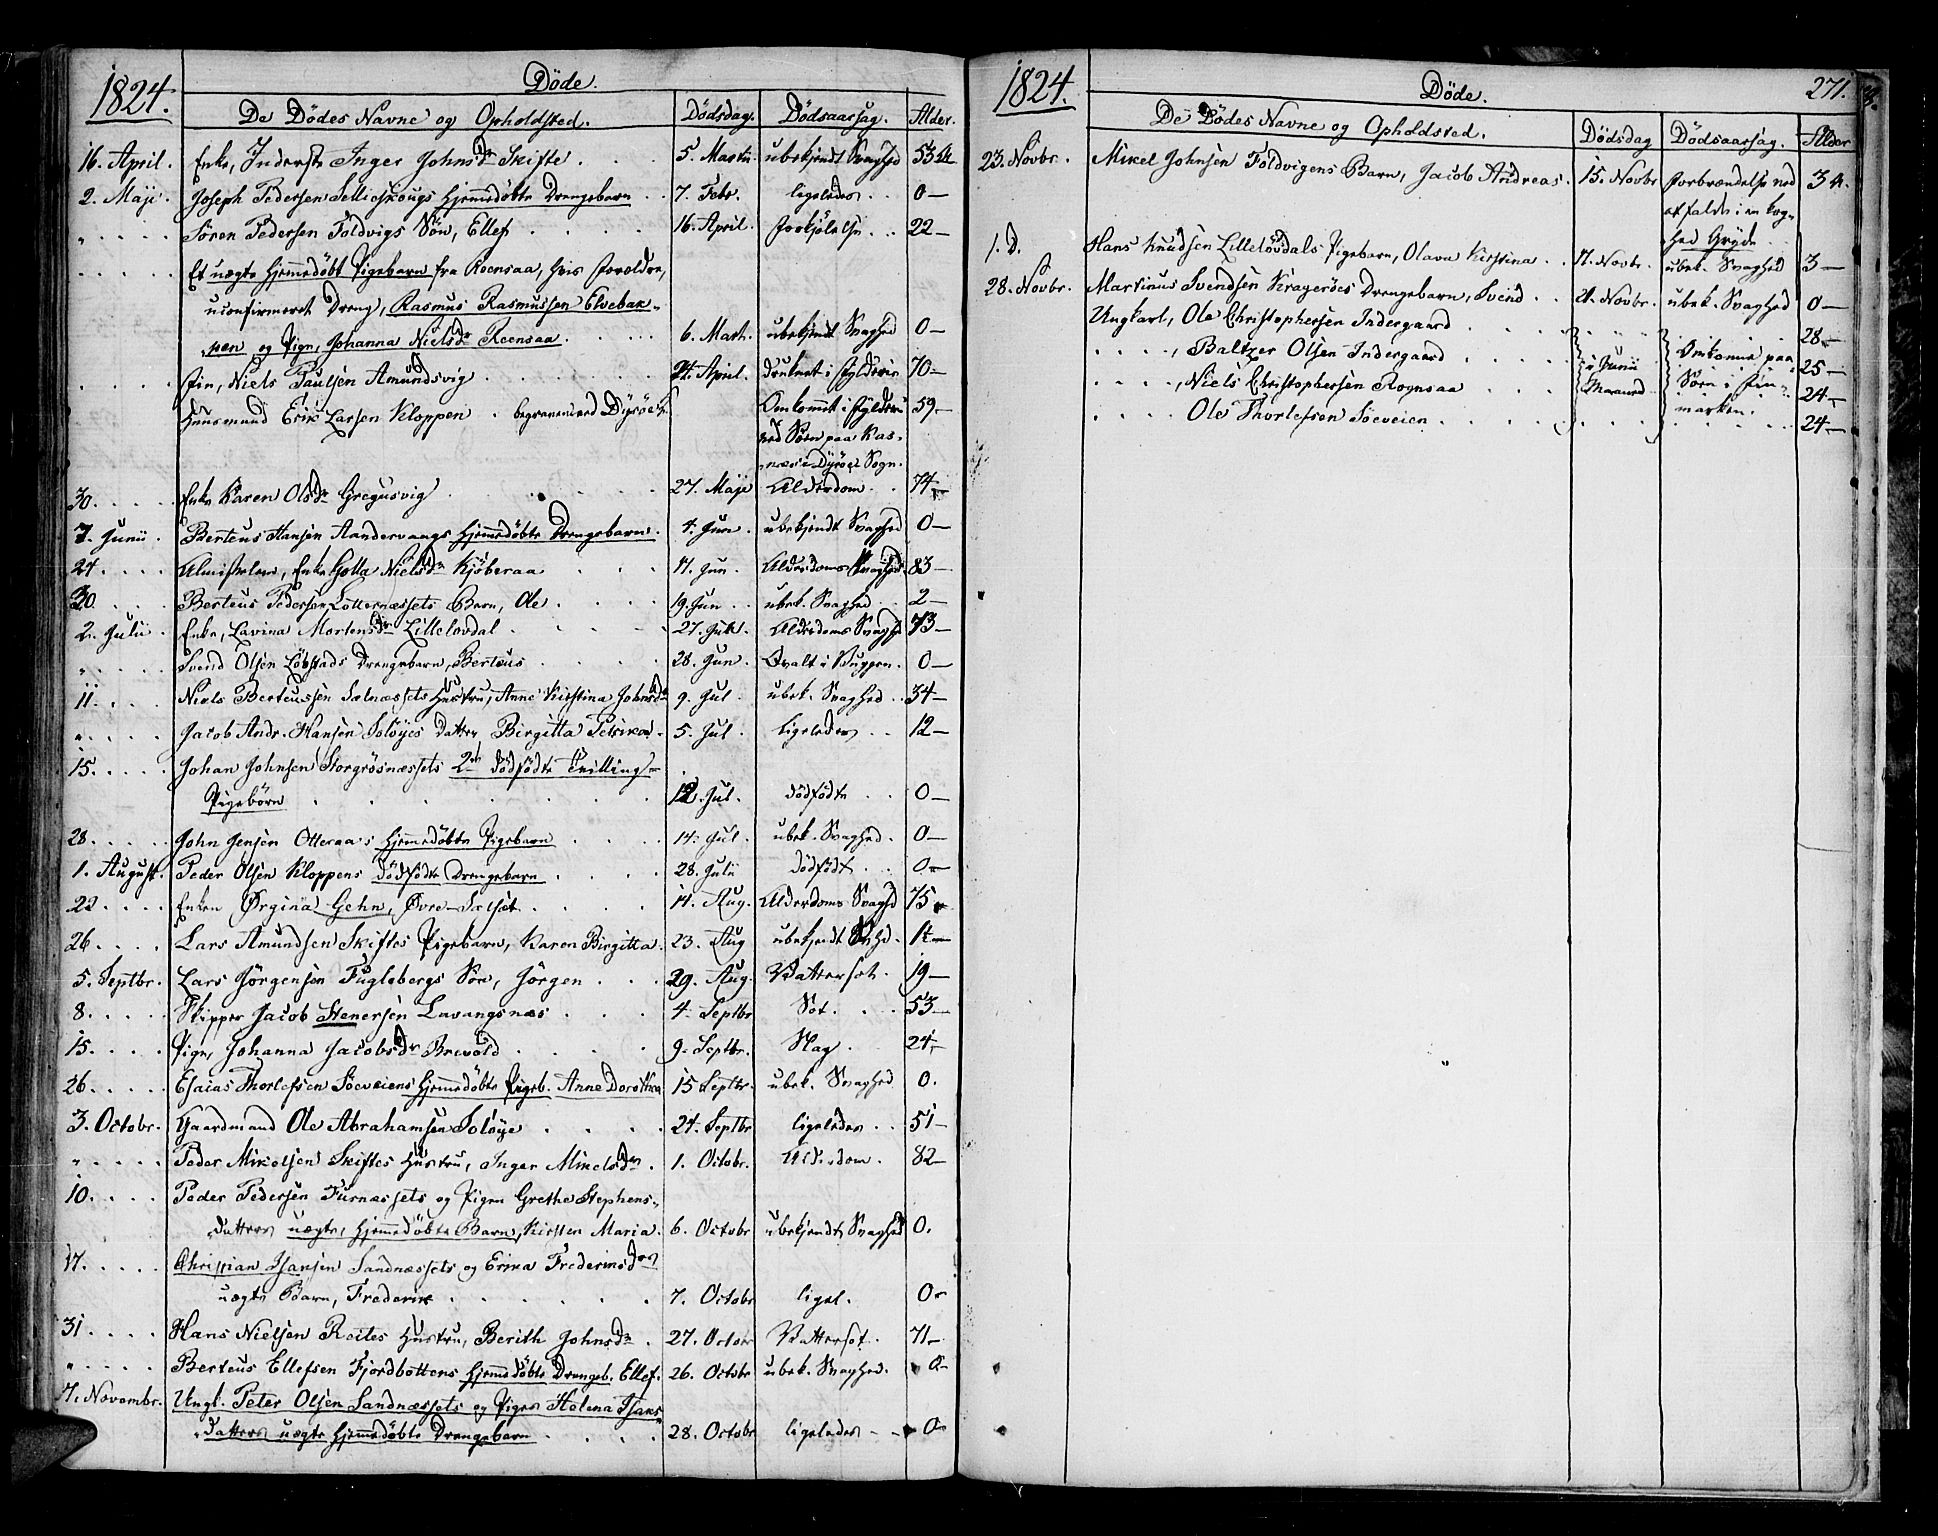 1824.
Döde.
De Dödes Navne og Opholdsted. Dödsdag. Dödsaarsag. Alder.
16. April. Enke, Inderste Inger Johnsdr Skifte 5. Martii ubekjendt Svaghed 53 Aar
2. Maji. Joseph Pedersen Sellieskougs Hjemmedöbte Drengebarn 7. Febr. ligeledes 0—
Sören Pedersen Foldvigs Sön, Ellef 16. April. Forkjölelse 22—
Et uægte Hjemmedöbt Pigebarn fra Roensaa, hvis Forældre,
uconfirmeret Dreng, Rasmus Rasmussen Elvebak-
ken og Pige, Johanna Nielsdr Roensaa. 6. Mart. ubekjendt Svaghed 0—
Fin, Niels Paulsen Amundsvig 24. April. druknet i Fylderie 70—
Huusmand Erik Larsen Kloppen begraven ved Dyröe Omkommet i Fylderie 59.—
ved Söen paa Kas-
næs i Dyröe Sogn.
30. Enke Karen Olsdr Gregusvig 27. Maji Alderdom 74—
7. Junii. Berteus Hansen Aandervaags Hjemmedöbte Drengebarn. 4. Jun. ubekjendt Svaghed 0—
24. Almisselem, Enke Golla Nielsdr Kjöberaa 11. Jun. Alderdoms Svaghed 83—
30. Berteus Pedersen Lotternæssets Barn, Ole 19. Jun. ubek. Svaghed 2—
2. Julii. Enke, Lavina Mortensdr Lillelovdal 27. Jul. Alderdoms Svaghed 73—
Svend Olsen Löbstads Drengebarn, Berteus 28. Jun. Qvalt i Vuggen. 0—
11. Niels Berteussen Sælnæssets Hustru, Anne Kirstina Johnsdr 9. Jul ubek. Svaghed 34—
Jacob Andr. Hansen Solöyes Datter Birgitta Petrika 5. Jul. ligeledes 12—
15. Johan Johnsen Storgrösnæssets 2de dödfödte Tvilling-
Pigebörn 12. Jul. dödfödte 0—
28. John Jensen Otteraa's Hjemmedöbte Pigebarn 14. Jul. ubek. Svaghed. 0—
1. August. Peder Olsen Kloppens dödfödte Drengebarn 28. Julii dödfödt 0—
22. Enken Ørgina Gehn, Øvre-Salset 11. Aug. Alderdoms Svaghd 75
26. Lars Amundsen Skiftes Pigebarn, Karen Birgitta. 23. Aug ubekjendt Svghd.
5. Septbr. Lars Jörgensen Fuglebergs Sön, Jörgen 29. Aug. Vattersot. 19—
8. Skipper Jacob Stenersen Lavangsnæs 4. Septbr Sot. 53—
15. Pige, Johanna Jacobsdr Brevold 9. Septbr. Slag. 24—
26. Esaias Thorlefsen Soeveiens Hjemmedöbte Pigeb. Anne Dorothea 15 Septbr. ubek. Svaghed 0.
3. Octobr. Gaardmand Ole Abrahamsen Solöye 24. Septbr ligeledes 51—
Peder Mikelsen Skiftes Hustru, Inger Mikelsdr. 1. Octobr. Alderdom. 82—
10. Peder Pedersen Furnæssets og Pigen Grethe Stephens-
datters uægte, Hjemmedöbte Barn, Kirsten Maria. 6. Octobr ubekjendt Svaghed 0.
17. Christian Hansen Sandnæssets og Erika Frederiksdrs
uægte Barn, Frederik 7. Octobr ligel. 0—
31. Hans Nielsen Roites Hustru, Berith Johnsdr 27. Octobr Vattersot. 71—
Berteus Ellefsen Fjordbottens Hjemmedöbte Drengeb. Ellef. 26. Octobr ubek. Svaghed. 0—
7. Novembr. Ungk. Peter Olsen Sandnæssets og Pigen Helena Isaks
datters uægte Hjemmedöbte Drengebarn 28. Octobr ligeledes 0—
1824.
Döde.
271.
De Dödes Navne og Opholdsted. Dödsdag Dödsaarsag. Alder
23. Novbr. Mikel Johnsen Foldvigens Barn, Jacob Andreas. 15. Novbr Forbrændelse ved 3 A.
at falde i en kog-
hed Gryde
1. D. Hans Knudsen Lillelövdals Pigebarn, Olava Kirstina 17. Novbr. ubek. Svaghed 3—
28. Novbr. Martinus Svendsen Krageröes Drengebarn, Svend 21. Novbr. ubek. Svaghed 0—
Ungkarl, Ole Christophersen Indergaard 28—
Baltzer Olsen Indergaard i Junii Omkomne paa 25—
Niels Christophersen Rognsaa Maaned Söen i Fin- 24—
marken.
Ole Thorlefsen Soeveien 24—